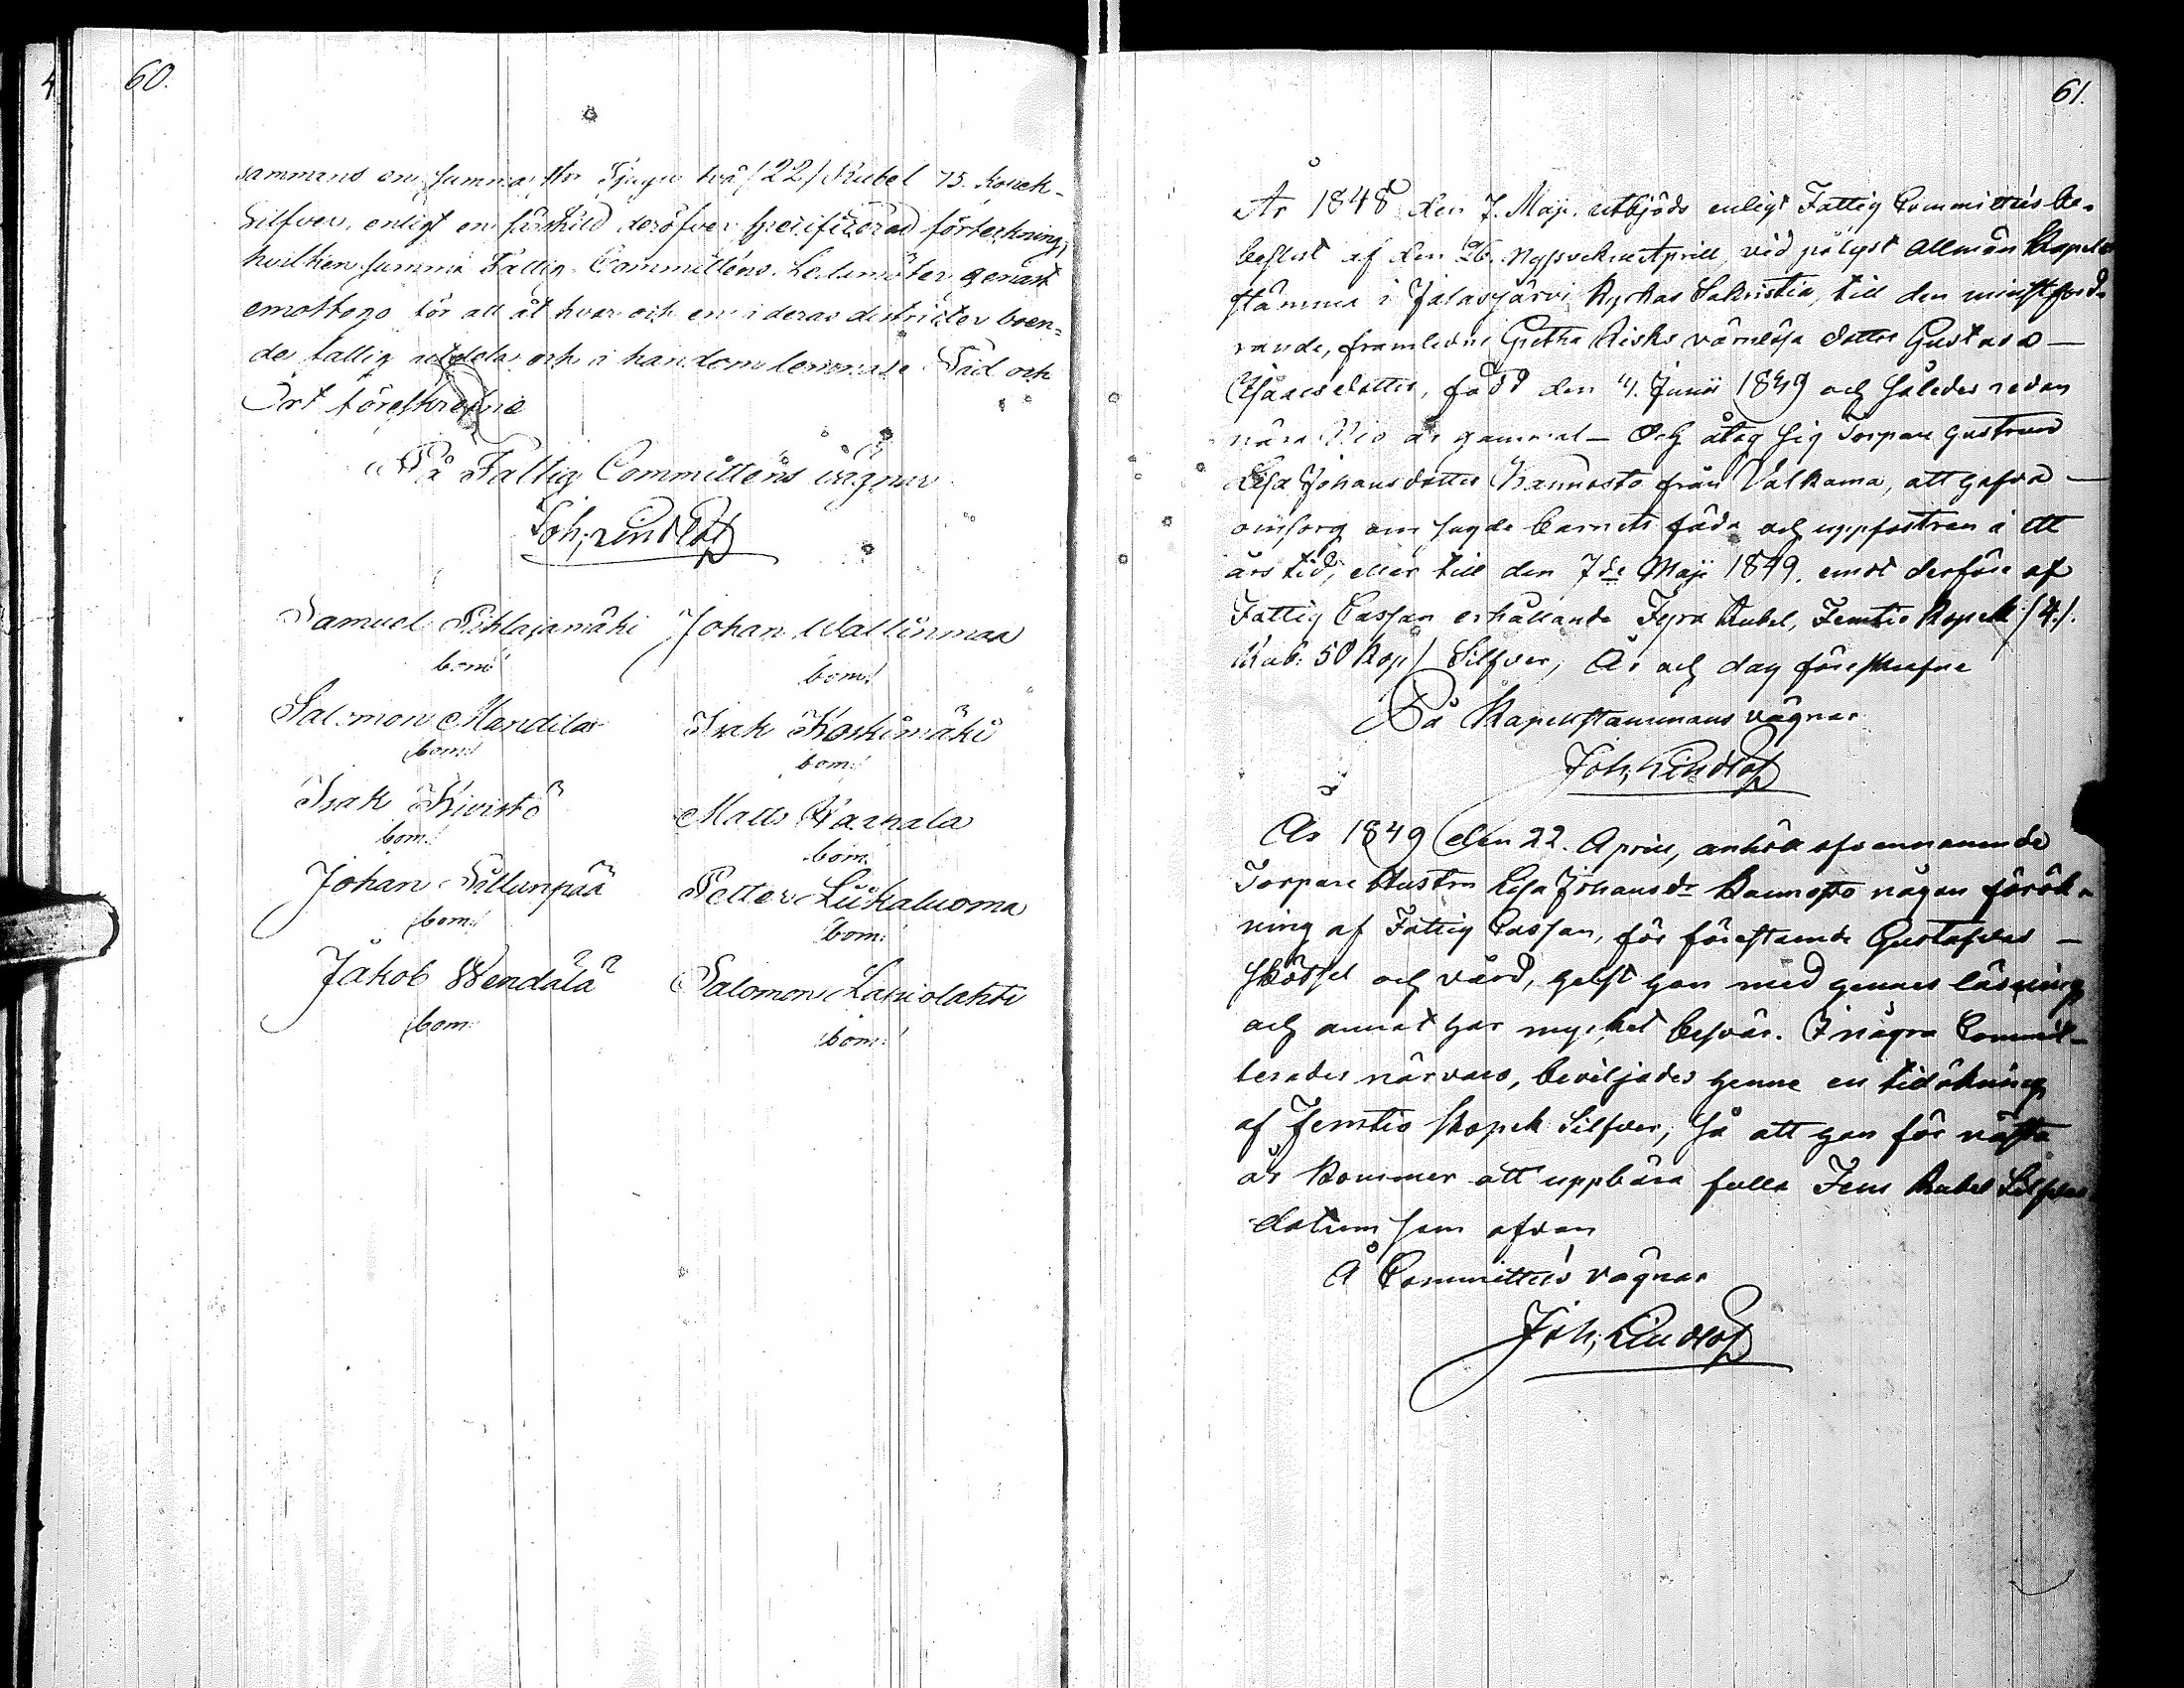 60.
sammans en summa stor Tjugu två /22/ Rubel 75. Kopek
Silfver, enligt en särskild deröfver specificerad förteckning,
hvilken summa Fattig Committéns Ledamöter genast
emottogo för att åt hvar och en i deras districter boen-
de fattig utdelas och i handom lemnas. Tid och
Ort föreskrefne
På Fattig Committéns vägnar
Joh; Lindlöf
Samuel Pihlajamäki Johan Wallinmaa
bom: bom:
Salomon Mandila Isak Koskimäki
bom: bom:
Isak Kivistö Matts Warhala
bom: bom:
Johan Sillanpää Petter Liikaluoma
bom: bom:
Jakob Wendälä Salomon Lakiolahti
bom: bom:
61.
År 1848 den 7. Maji utbjöds enligt Fattig Committéns be-
beslut af den 26. nyssvekne Aprill, vid pålyst allmän Kapell
stämma i Jalasjärvi Kyrkas Sakristia, till den minstford-
rande, framledne Gretha Risks värnlösa dotter Gustava
Isaacsdotter, född den 4. Junii 1839 och således redan
nära Nio år gammal – Och åtog sig Torpare hustrun
Lisa Johansdotter Hannosto från Valkama, att hafva
omsorg om sagde barnets föda och uppfostran i ett
års tid, eller till den 7de Maji 1849. emot derföre af
Fattig Cassan erhållande Fyra Rubel, Femtio Kopek /4./.
Rub: 50 Kop/ Silfver; År och dag föreskrefne
På Kapellstämmans vägnar
Joh; Lindlöf
År 1849 den 22. April, anhöll ofvannämnde
Torpare Hustru Lisa Johansdr Hannosto någon förök-
ning af Fattig Cassan, för förestående Gustafvas
skötsel och vård, helst hon med hennes läsning
och annat har mycket besvär. I några Commit-
terades närvaro, beviljades henne en tidökning
af Femtio Kopek Silfver, så att hon för nästa
år kommer att uppbära fulla Fem Rubel Silfver
datum som ofvan
Å Committéns vägnar
Joh; Lindlöf